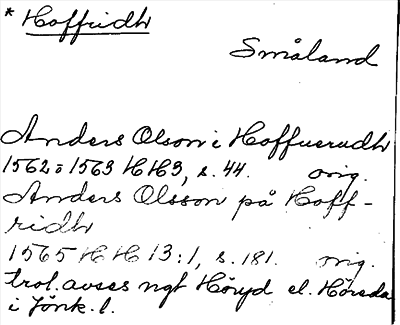 * Hoffridh
Småland
Anders Olson i Hoffuerudh
1562 = 1563 HH3, s. 44. orig.
Anders Olsson på Hoff-
ridh
1565 HH 13:1, s. 181. orig.
trol. avses ngt Höryd el. Höreda
i Jönk. l.